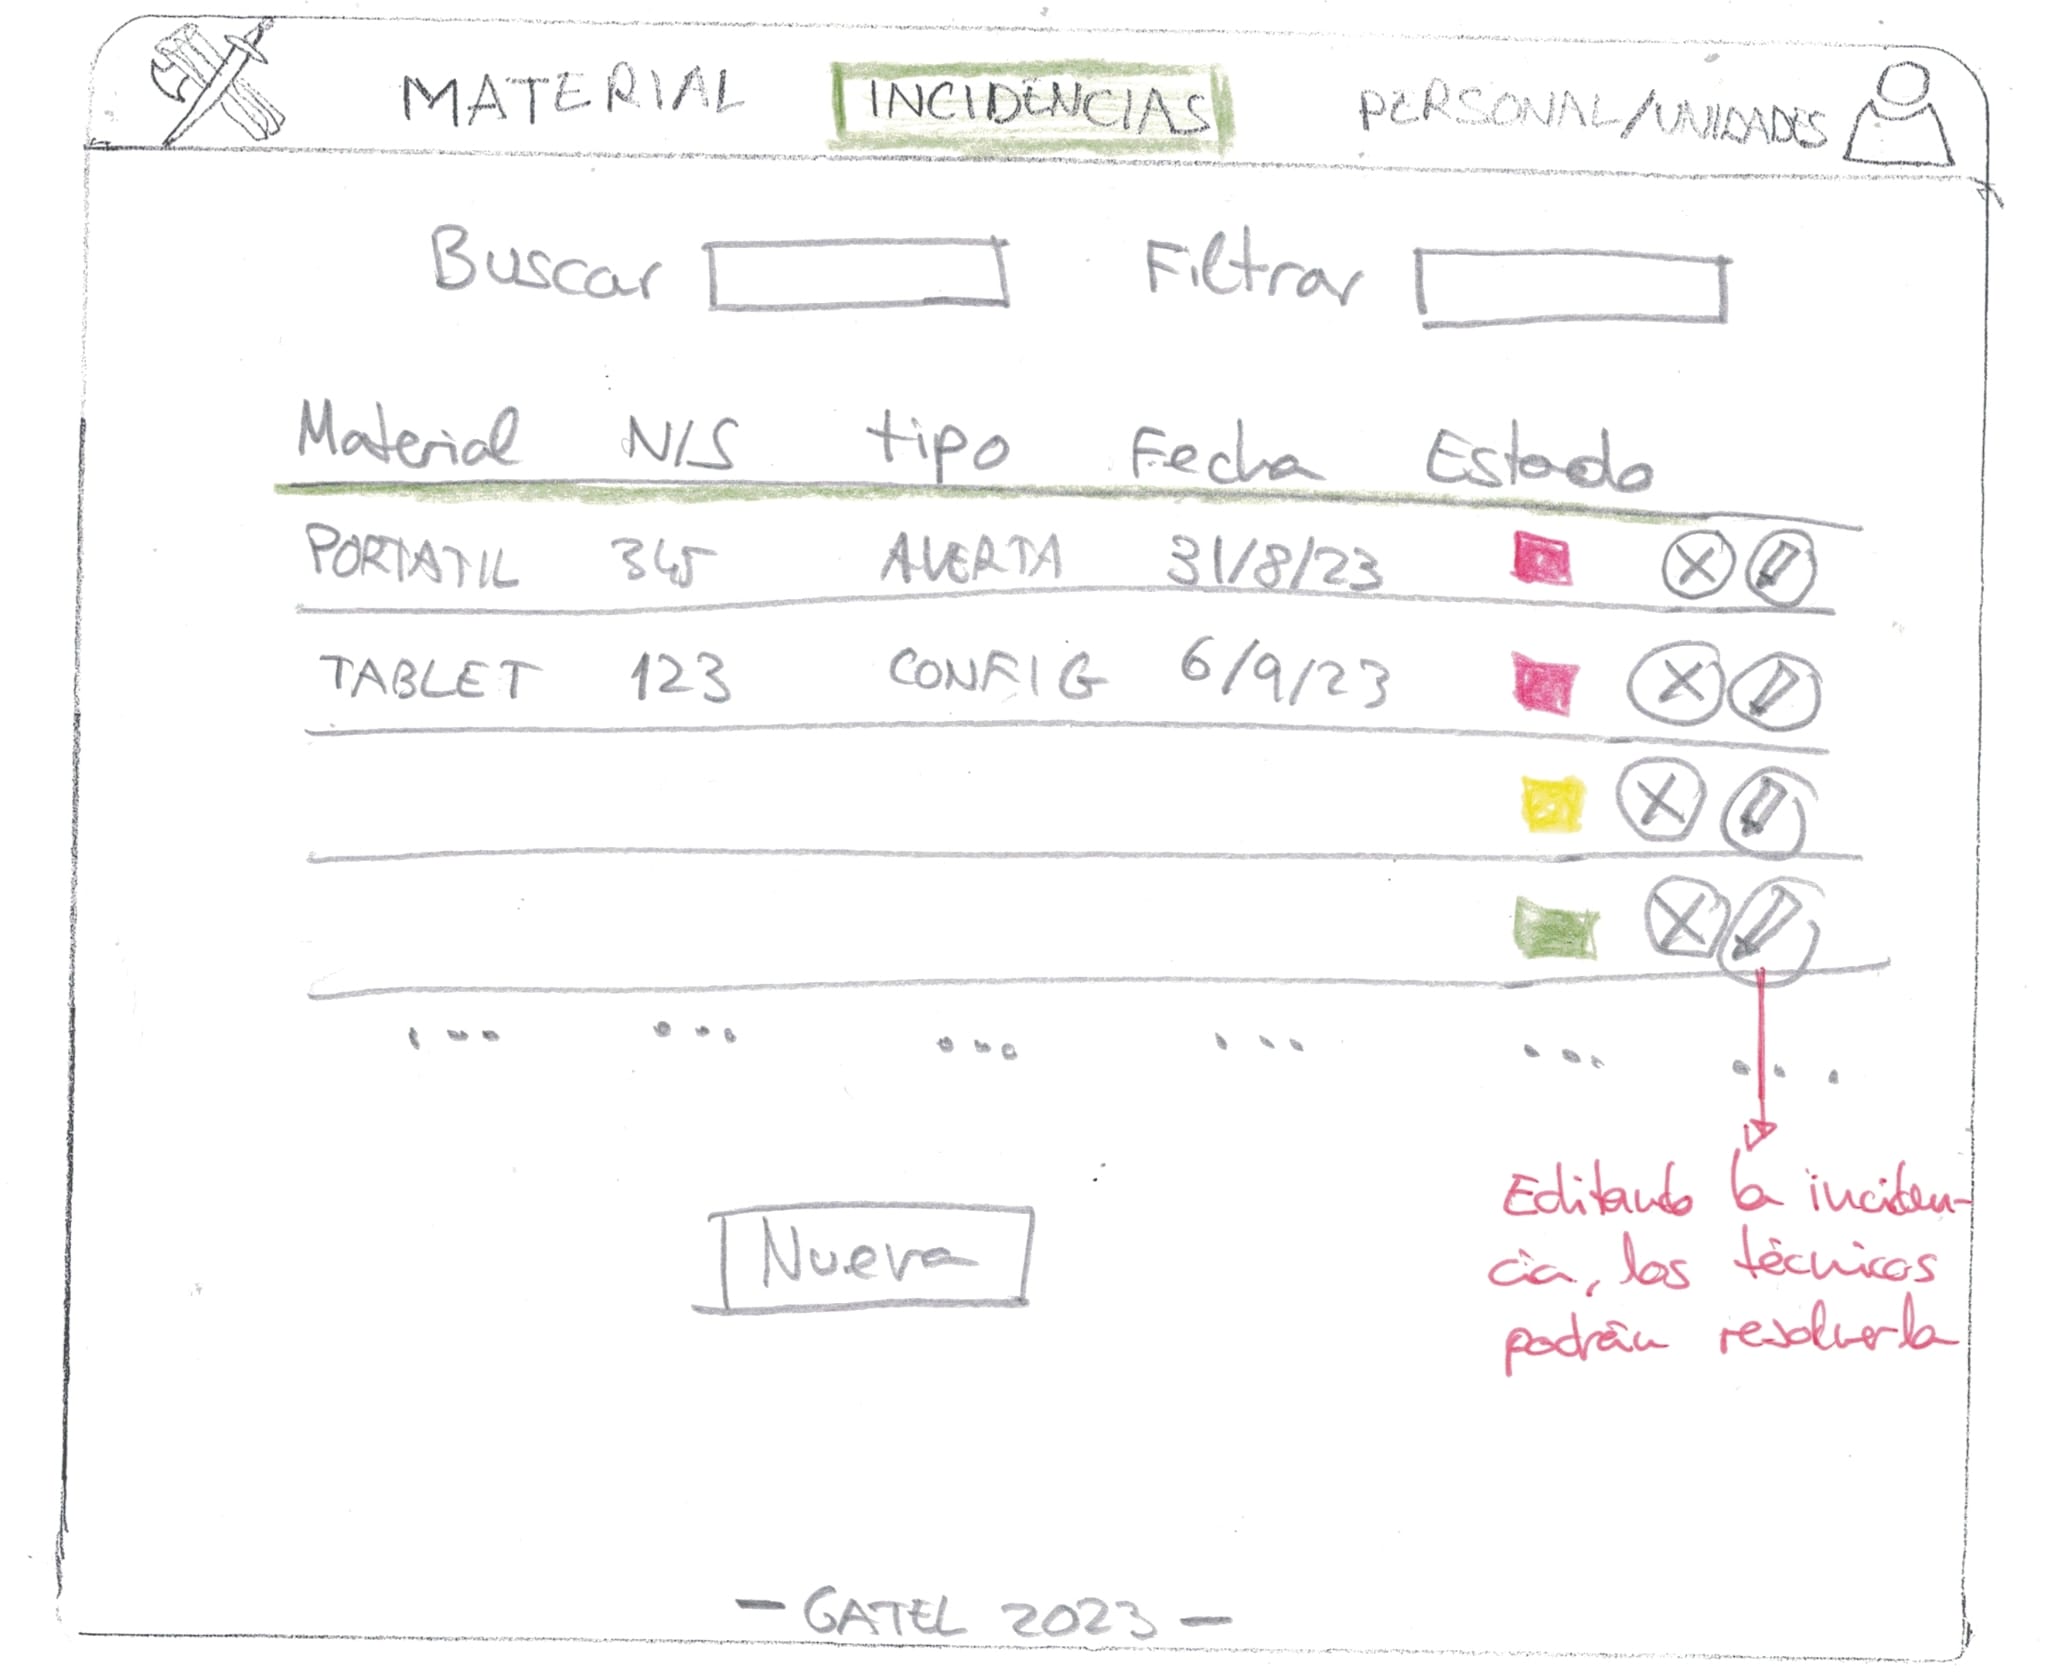 MATERIAL INCIDENCIAS PERSONAL/UNIDADES
Buscar Filtrar
Material N/S tipo Fecha Estado
PORTATIL 345 AVERTA 31/8/23
TABLET 123 CONFIG 6/9/23
... ... ... ... ... ...
Nueva
Editando la inciden-
cia, los técnicos
podrán resolverla
- GATEL 2023 -